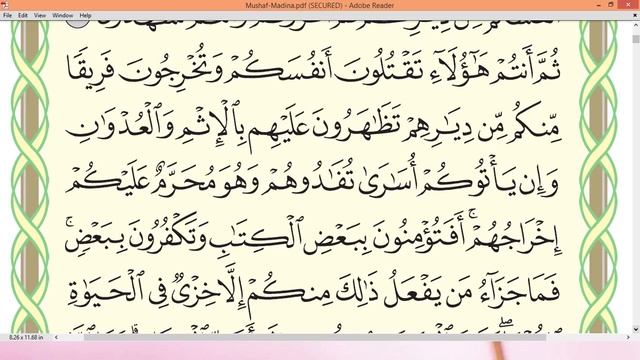 Mushaf-Madina.pdf (SECURED) - Adobe Reader
File Edit View Window Help
ثُمَّ أَنتُمْ هَٰٓؤُلَآءِ تَقْتُلُونَ أَنفُسَكُمْ وَتُخْرِجُونَ فَرِيقًا
مِّنكُم مِّن دِيَٰرِهِمْ تَظَٰهَرُونَ عَلَيْهِم بِٱلْإِثْمِ وَٱلْعُدْوَٰنِ
وَإِن يَأْتُوكُمْ أُسَٰرَىٰ تُفَٰدُوهُمْ وَهُوَ مُحَرَّمٌ عَلَيْكُمْ
إِخْرَاجُهُمْ ۚ أَفَتُؤْمِنُونَ بِبَعْضِ ٱلْكِتَٰبِ وَتَكْفُرُونَ بِبَعْضٍ ۚ
فَمَا جَزَآءُ مَن يَفْعَلُ ذَٰلِكَ مِنكُمْ إِلَّا خِزْىٌ فِى ٱلْحَيَوٰةِ
8.26 x 11.68 in